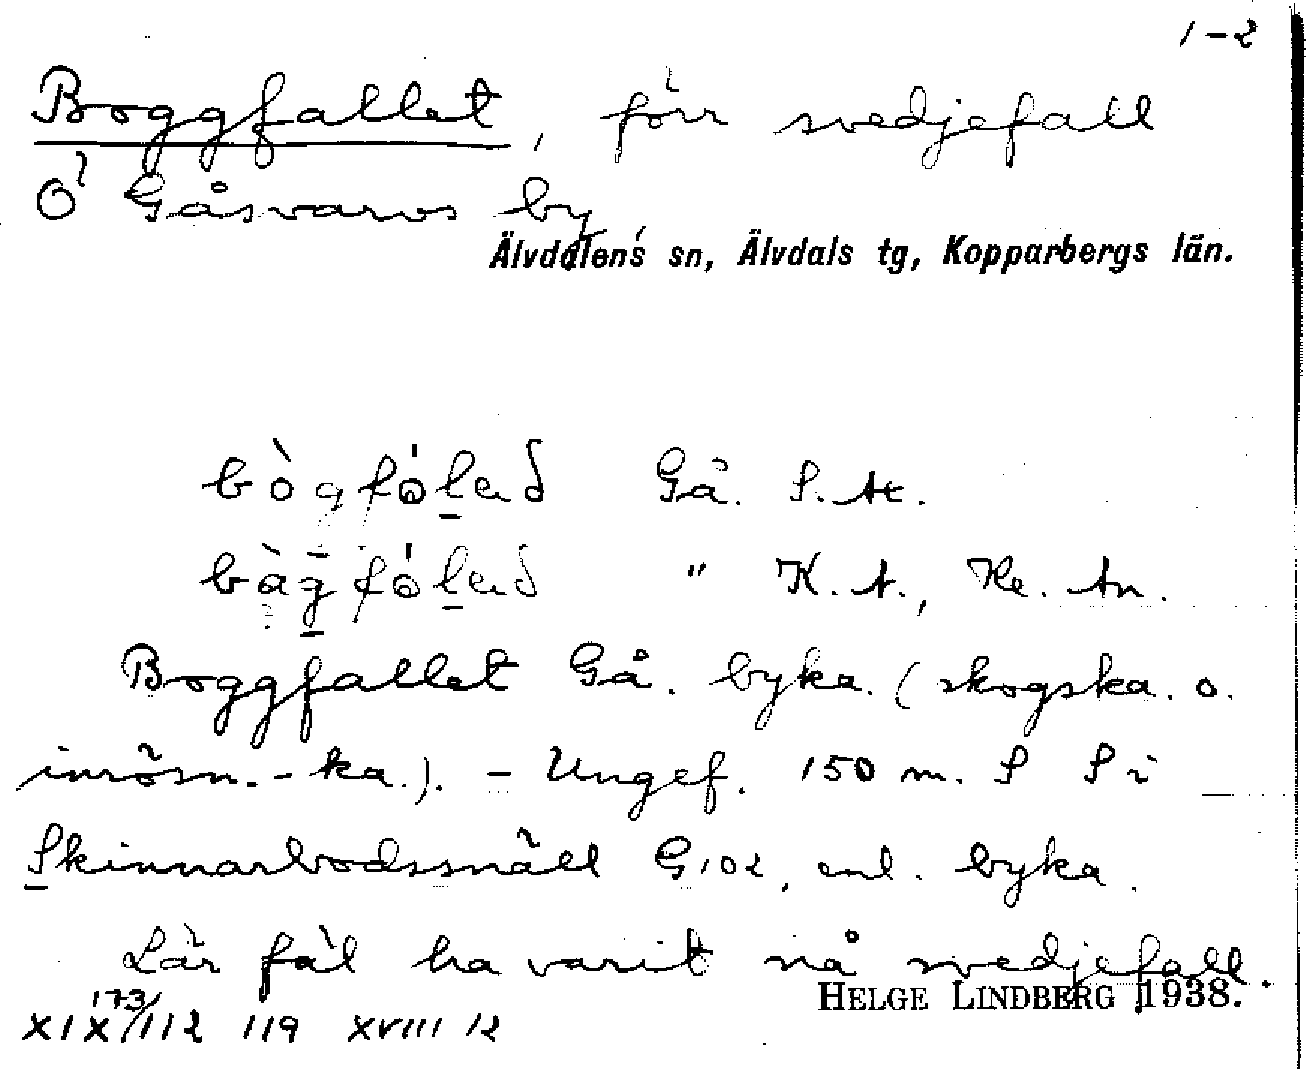 1-2
Boggfallet, förr svedjefall
Ö Gåsvarvs by
Älvdalens sn, Älvdals tg, Kopparbergs län.
Gå. S. At.
" K. A., He. An.
Boggfallet Gå. byka. (skogska. o.
inrösn.-ka.). - Ungef. 150 m. S S i
Skinnarbodssnäll G102, enl. byka.
Lär fäl ha varit nå svedjefall.
HELGE LINDBERG 1938.
173/
XIX/112 119 XVIII 12